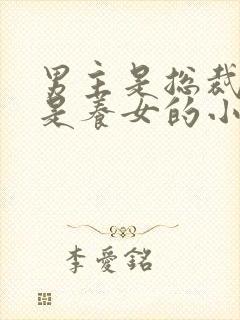 男主是总裁
是养女的小
李愛銘